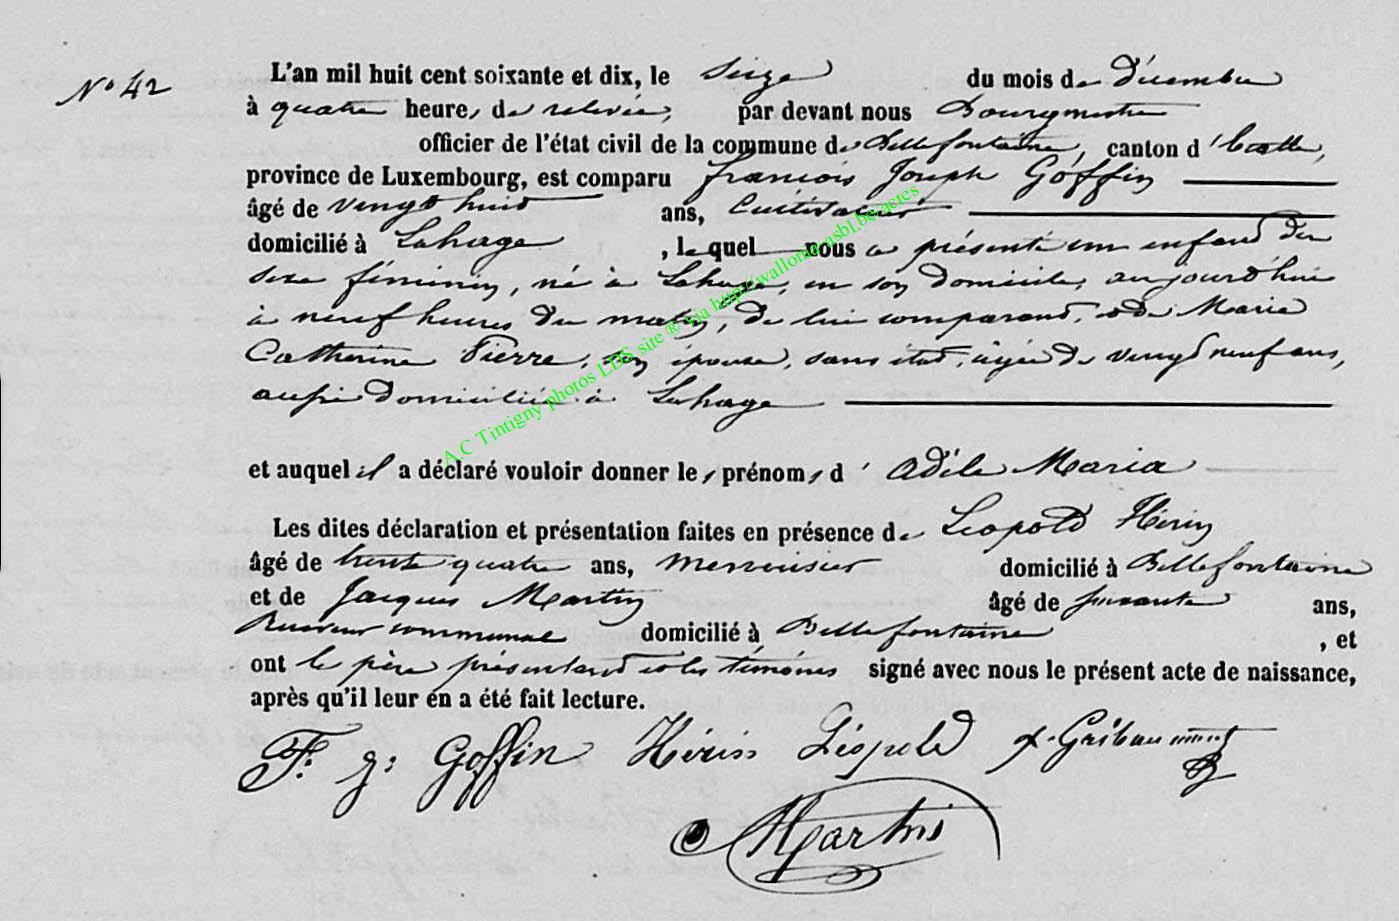 N° 42
L'an mil huit cent soixante et dix, le seize du mois de décembre
à quatre heures de relevée, par devant nous Bourgmestre
officier de l'état civil de la commune de Bellefontaine, canton d'Etalle,
province de Luxembourg, est comparu François Joseph Goffin
âgé de vingt huit ans, Cultivateur
domicilié à Lahage, lequel nous a présenté un enfant du
sexe féminin, né à Lahage, en son domicile, aujourd'hui
à neuf heures du matin, de lui comparant, et de Maria
Catherine Pierre, son épouse, sans état, âgée de vingt neuf ans,
aussi domiciliée à Lahage
et auquel il a déclaré vouloir donner les prénoms d' Adèle Maria
Les dites déclaration et présentation faites en présence de Léopold
âgé de trente quatre ans, menuisier domicilié à Bellefontaine
et de Jacques Martin âgé de soixante ans,
Receveur communal domicilié à Bellefontaine, et
ont le père présentant et les témoins signé avec nous le présent acte de naissance,
après qu'il leur en a été fait lecture.
F. J: Goffin Léopold
Martin
A.C Tintigny photos LDS site ® via http://wallonia.asbl.be/actes